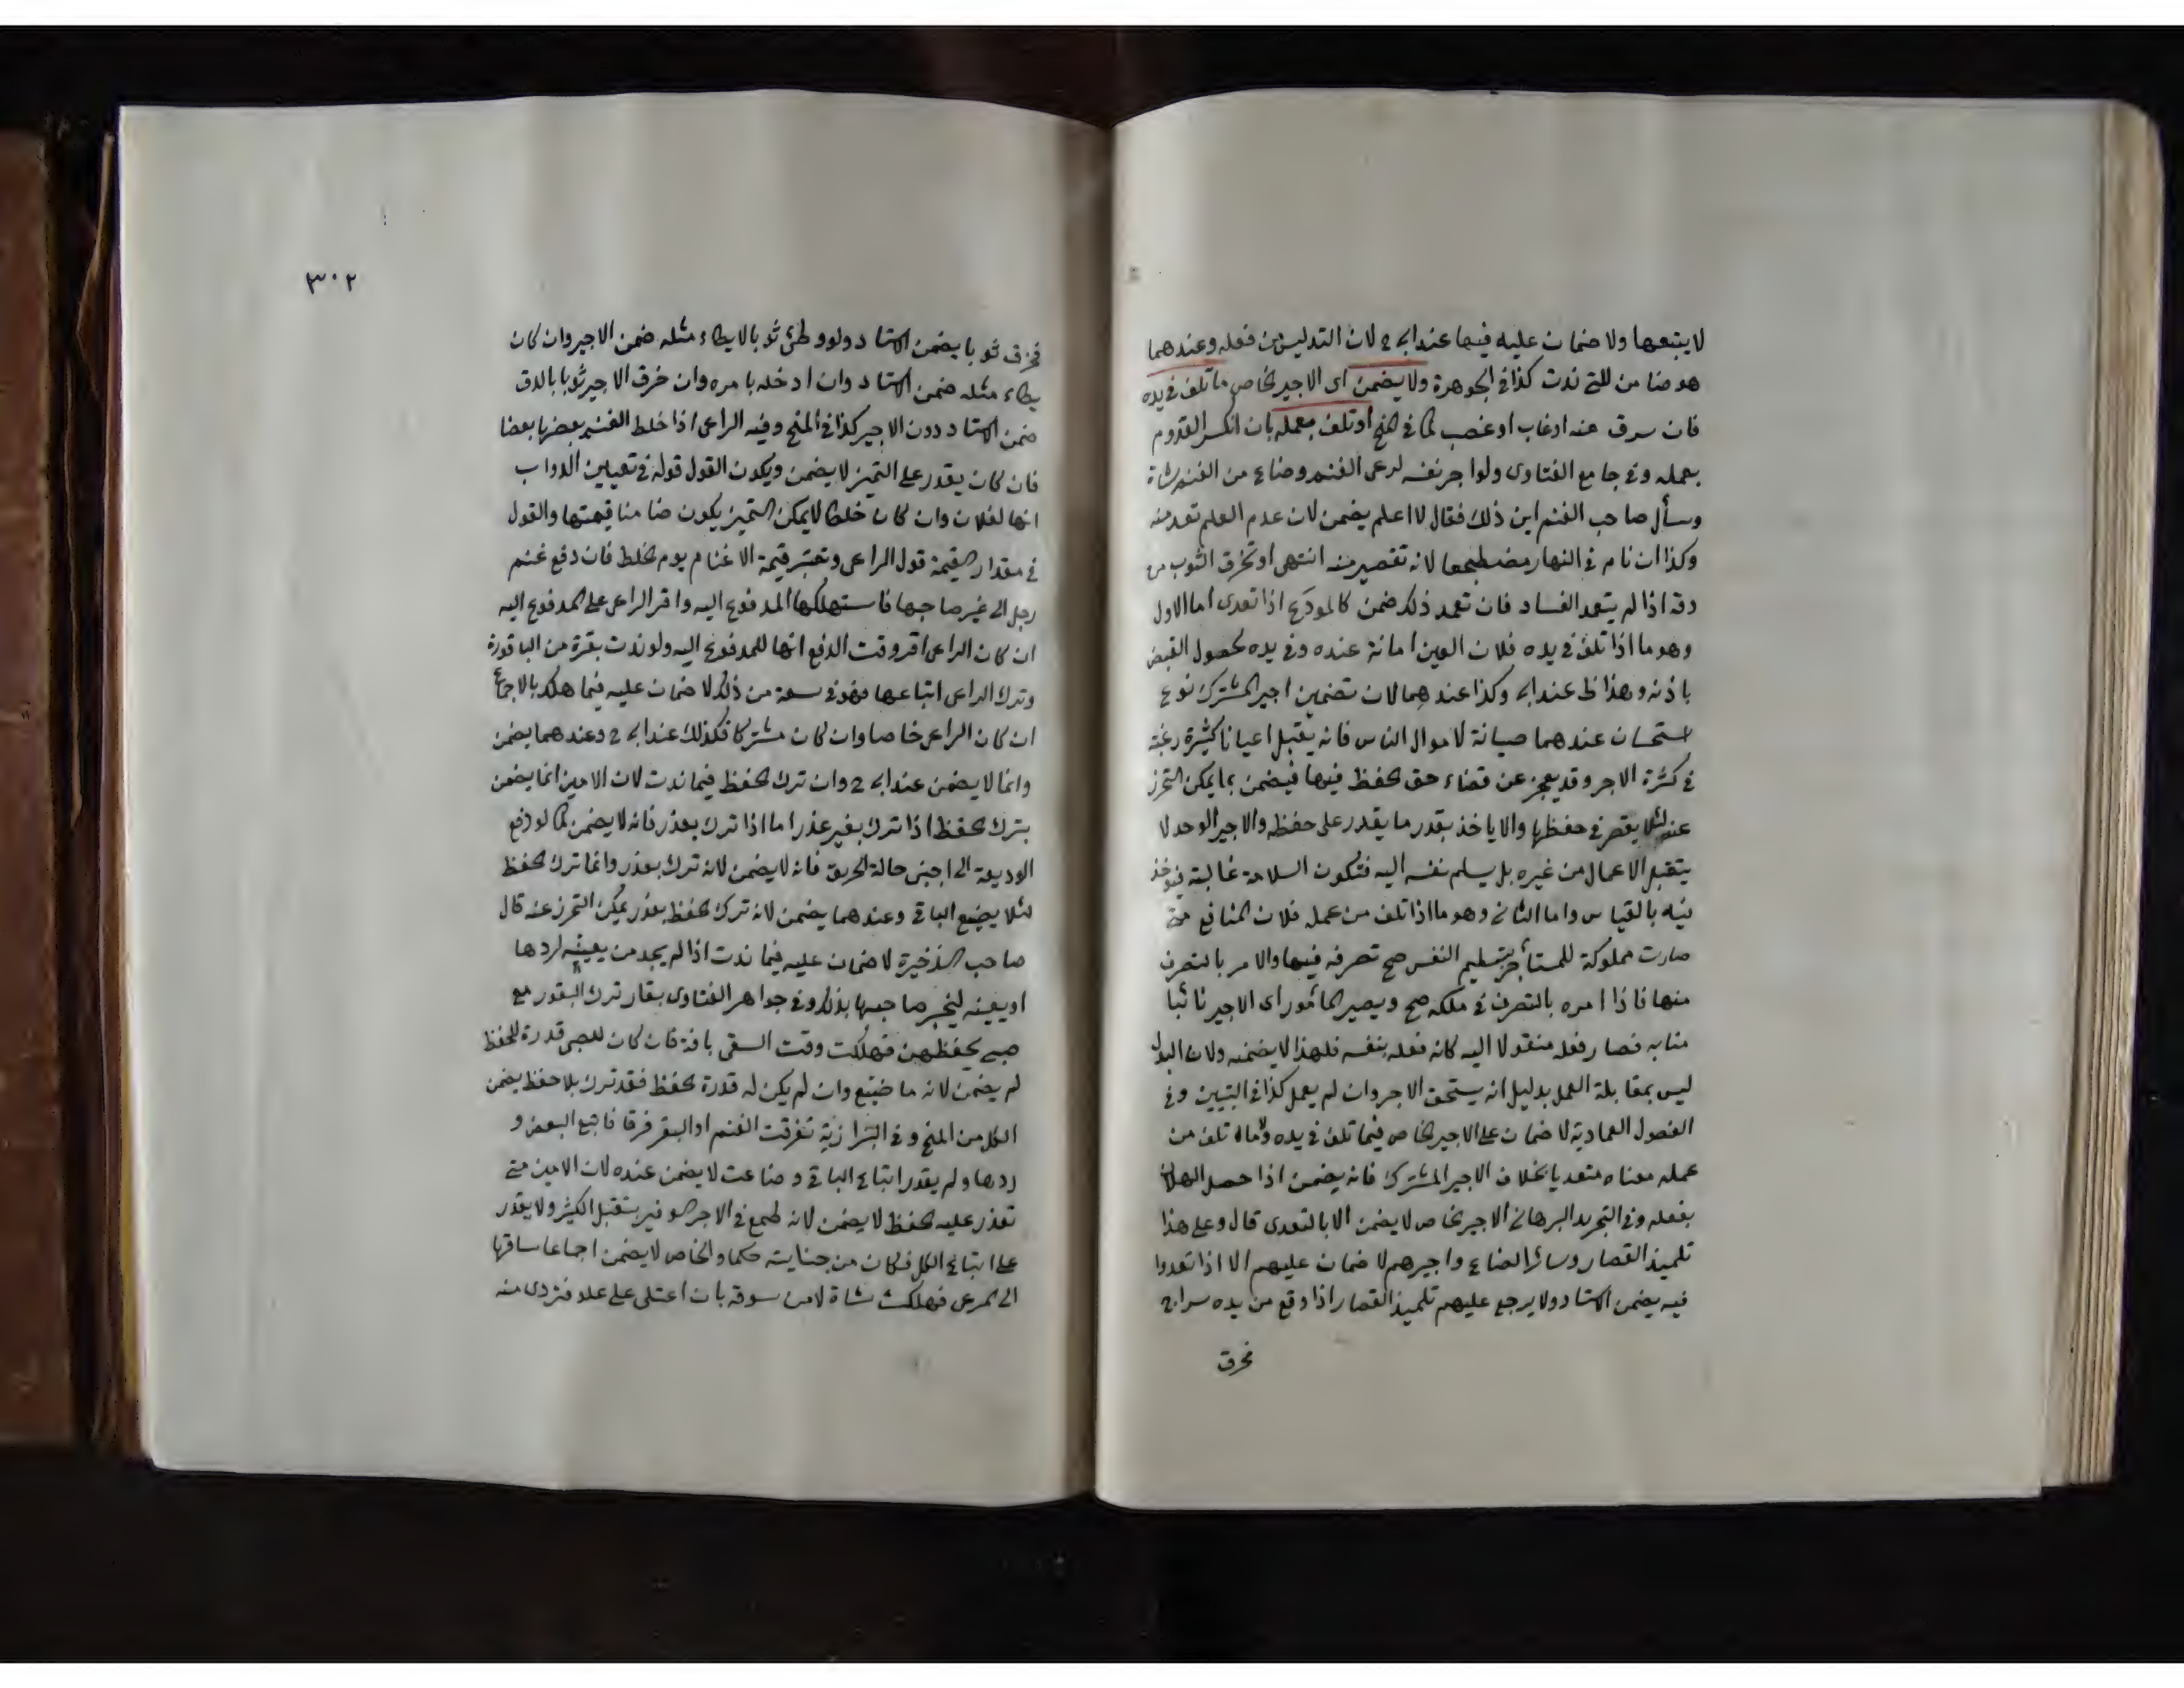 لا يتبعها ولا ضمان عليه فيها عند ابى ح لان التدليس من فعله وعندهما
هو ضامن للتى ندت كذا فى الجوهرة ولا يضمن اى الاجير الخاص ما تلف فى يده
فان سرق منه او غاب او غصب كما فى المنح او تلف بعمله بان انكسر القدوم
بعمله وفى جامع الفتاوى ولو اجر نفسه لرعى الغنم وضاع من الغنم شاة
وسأل صاحب الغنم اين ذلك فقال لا اعلم يضمن لان عدم العلم تعد منه
وكذا ان نام فى النهار مضطجعا لانه تقصير منه انتهى او تخرق الثوب من
دقه اذا لم يتعمد الفساد فان تعمد ذلك ضمن كالمودع اذا تعدى اما الاول
وهو ما اذا تلف فى يده فلان العين امانة عنده وفى يده لحصول القبض
باذنه وهذا ظ عند ابى وكذا عندهما لان تضمين اجير المشترك نوع
استحسان عندهما صيانة لاموال الناس فانه يقبل اعيانا كثيرة رغبة
فى كثرة الاجر وقد يعجز عن قضاء حق الحفظ فيها فيضمن بما يمكن التحرز
عنه لئلا يقصر فى حفظها والا ياخذ بقدر ما يقدر على حفظه والاجير الوحد لا
يتقبل الاعمال من غيره بل يسلم نفسه اليه فتكون السلامة غالبة فيؤخذ
فيه بالقياس واما الثانى وهو ما اذا تلف من عمله فلان المنافع متى
صارت مملوكة للمستأجر بتسليم النفس صح تصرفه فيها والامر بالتصرف
منها فاذا امره بالتصرف فى ملكه صح ويصير المأمور اى الاجير نائبا
منابه فصار فعله منقولا اليه كانه فعله بنفسه فلهذا لا يضمنه ولان البدل
ليس بمقابلة العمل بدليل انه يستحق الاجر وان لم يعمل كذا فى التبيين وفى
الفصول العمادية لا ضمان على الاجير الخاص فيما تلف فى يده تلف من
عمله معناه متعديا بخلاف الاجير المشترك فانه يضمن اذا حصل الهلاك
بفعله وفى التجريد البرهانى الاجير الخاص لا يضمن الا بالتعدى قال وعلى هذا
تلميذ القصار وسائر الصناع واجيرهم لا ضمان عليهم الا اذا تعدوا
فيه يضمن الاستاد ولا يرجع عليهم تلميذ القصار اذا وقع من يده سراج
فحرق
٣٠٢
فحرق ثوبا يضمن الاستاد ولو وطئ ثوبا لا يطاء مثله ضمن الاجير وان كان
يطاء مثله ضمن الاستاد وان ادخله بامره وان خرق الاجير ثوبا بالدق
ضمن الاستاد دون الاجير كذا فى المنح وفيه الراعى اذا خلط الغنم بعضها بعضا
فان كان يقدر على التميز لا يضمن ويكون القول قوله فى تعيين الدواب
انها لفلان وان كان خلطا لا يمكن التميز يكون ضامنا قيمتها والقول
فى مقدار القيمة قول الراعى وتعتبر قيمة الاغنام يوم الخلط فان دفع غنم
رجل الى غير صاحبها فاستهلكها المدفوع اليه واقر الراعى على المدفوع اليه
ان كان الراعى اقر وقت الدفع انها للمدفوع اليه ولو ندت بقرة من الباقورة
وترك الراعى اتباعها فهو فى سعة من ذلك لا ضمان عليه فيما هلك بالاجماع
ان كان الراعى خاصا وان كان مشتركا فكذلك عند ابى ح وعندهما يضمن
وانما لا يضمن عند ابى ح وان ترك الحفظ فيما ندت لان الامين انما يضمن
بترك الحفظ اذا ترك بغير عذر اما اذا ترك بعذر فانه لا يضمن كما لو دفع
الوديعة الى اجنبى حالة الحريق فانه لا يضمن لانه ترك بعذر وانما ترك الحفظ
لئلا يضيع الباقى وعندهما يضمن لانه ترك الحفظ بعذر يمكن التحرز عنه قال
صاحب الذخيرة لا ضمان عليه فيما ندت اذا لم يجد من يعينه لردها
او يعينه ليخبر صاحبها بذلك وفى جواهر الفتاوى بقار ترك البقور مع
صبى يحفظهن فهلكت وقت السقى بافة فان كان للصبى قدرة للحفظ
لم يضمن لانه ما ضيع وان لم يكن له قدرة الحفظ فقد ترك بلا حفظ يضمن
الكل من المنح وفى البزازية تفرقت الغنم او البقر فرقا فاتبع البعض و
ردها ولم يقدر اتباع الباقى وضاعت لا يضمن عنده لان الامين متى
تعذر عليه الحفظ لا يضمن لانه طمع فى الاجر الوفير بتقبل الكثير ولا يقدر
على اتباع الكل فكان من جنايته حكما والخاص لا يضمن اجماعا ساقها
الى المرعى فهلكت شاة لا من سوقه بان اعتلى على علو فتردى منه